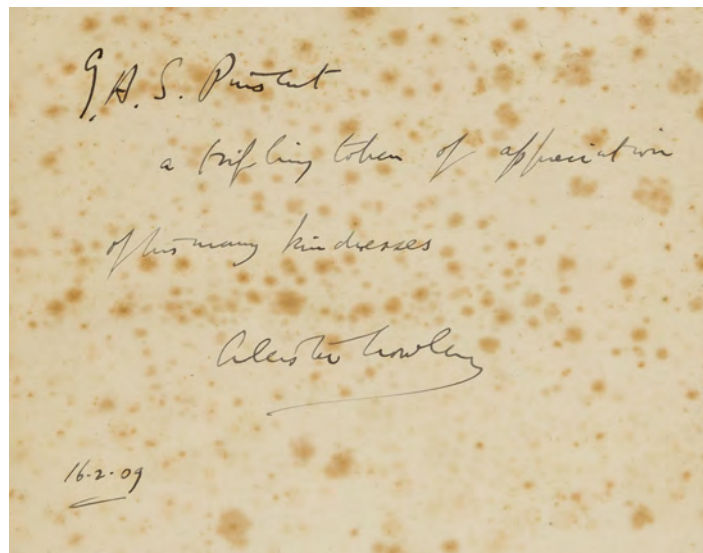 G. A. S.
a trifling token of appreciation
of his many kindnesses
Aleister Crowley
16-2-09